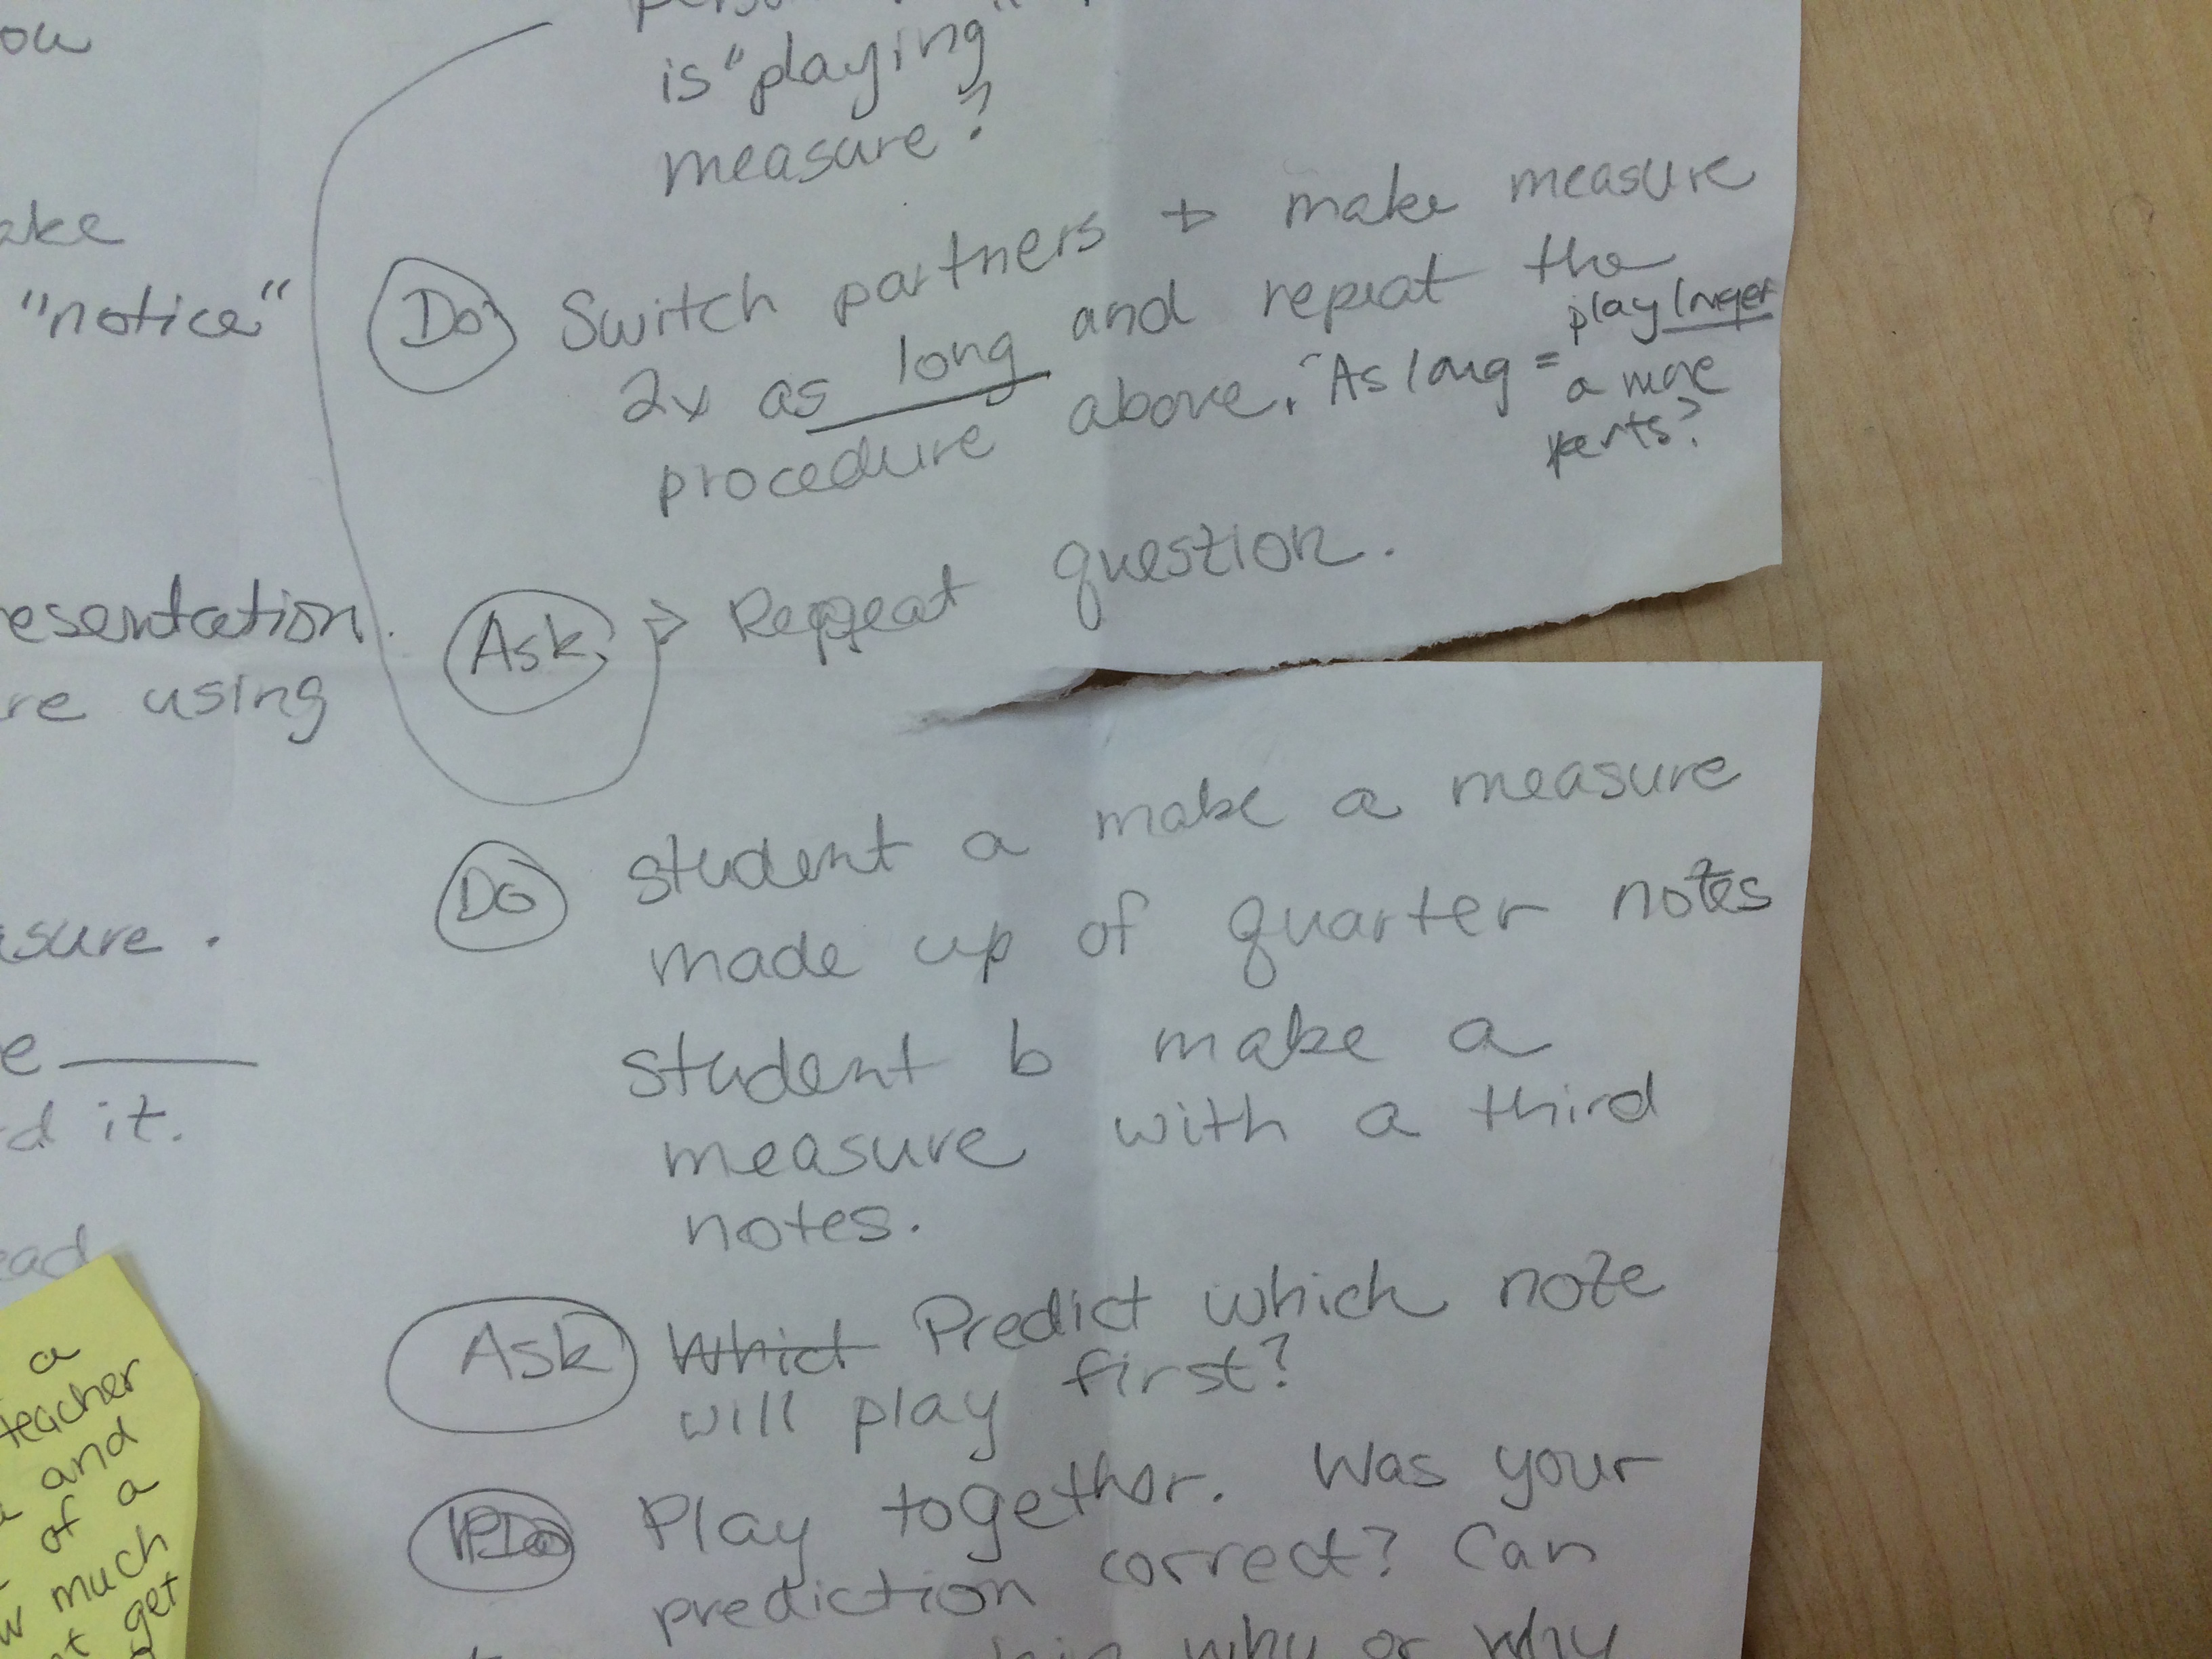 ou
ake
"notice"
esentation.
re using
asure.
e ____
d it.
ead
a
teacher
and
of a
much
get
is "playing"
measure?
Do Switch partners + make measure
2x as long and repeat the
procedure above. "As long =
play longer
a more
Ask → Repeat question.
Do student a make a measure
made up of quarter notes
student b make a
measure with a third
notes.
Ask Which Predict which note
will play first?
Do Play together. Was your
prediction correct? Can
why or why